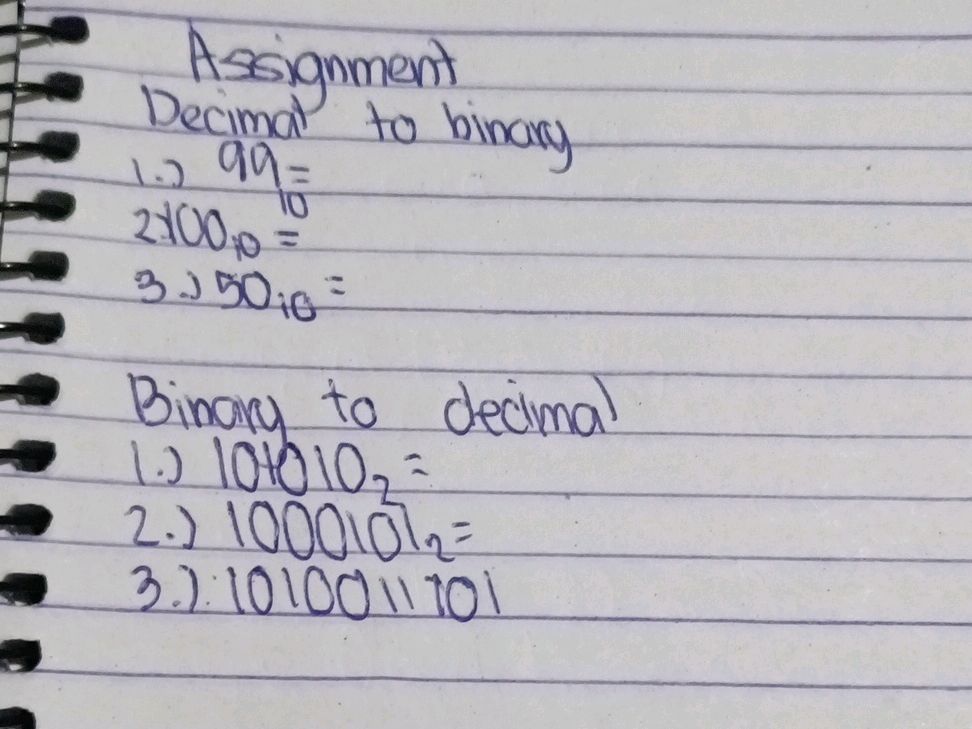 Assignment
Decimal to binary
1.) 99₁₀ =
2.) 100₁₀ =
3.) 50₁₀ =
Binary to decimal
1.) 101010₂ =
2.) 1000101₂ =
3.) 1010011101